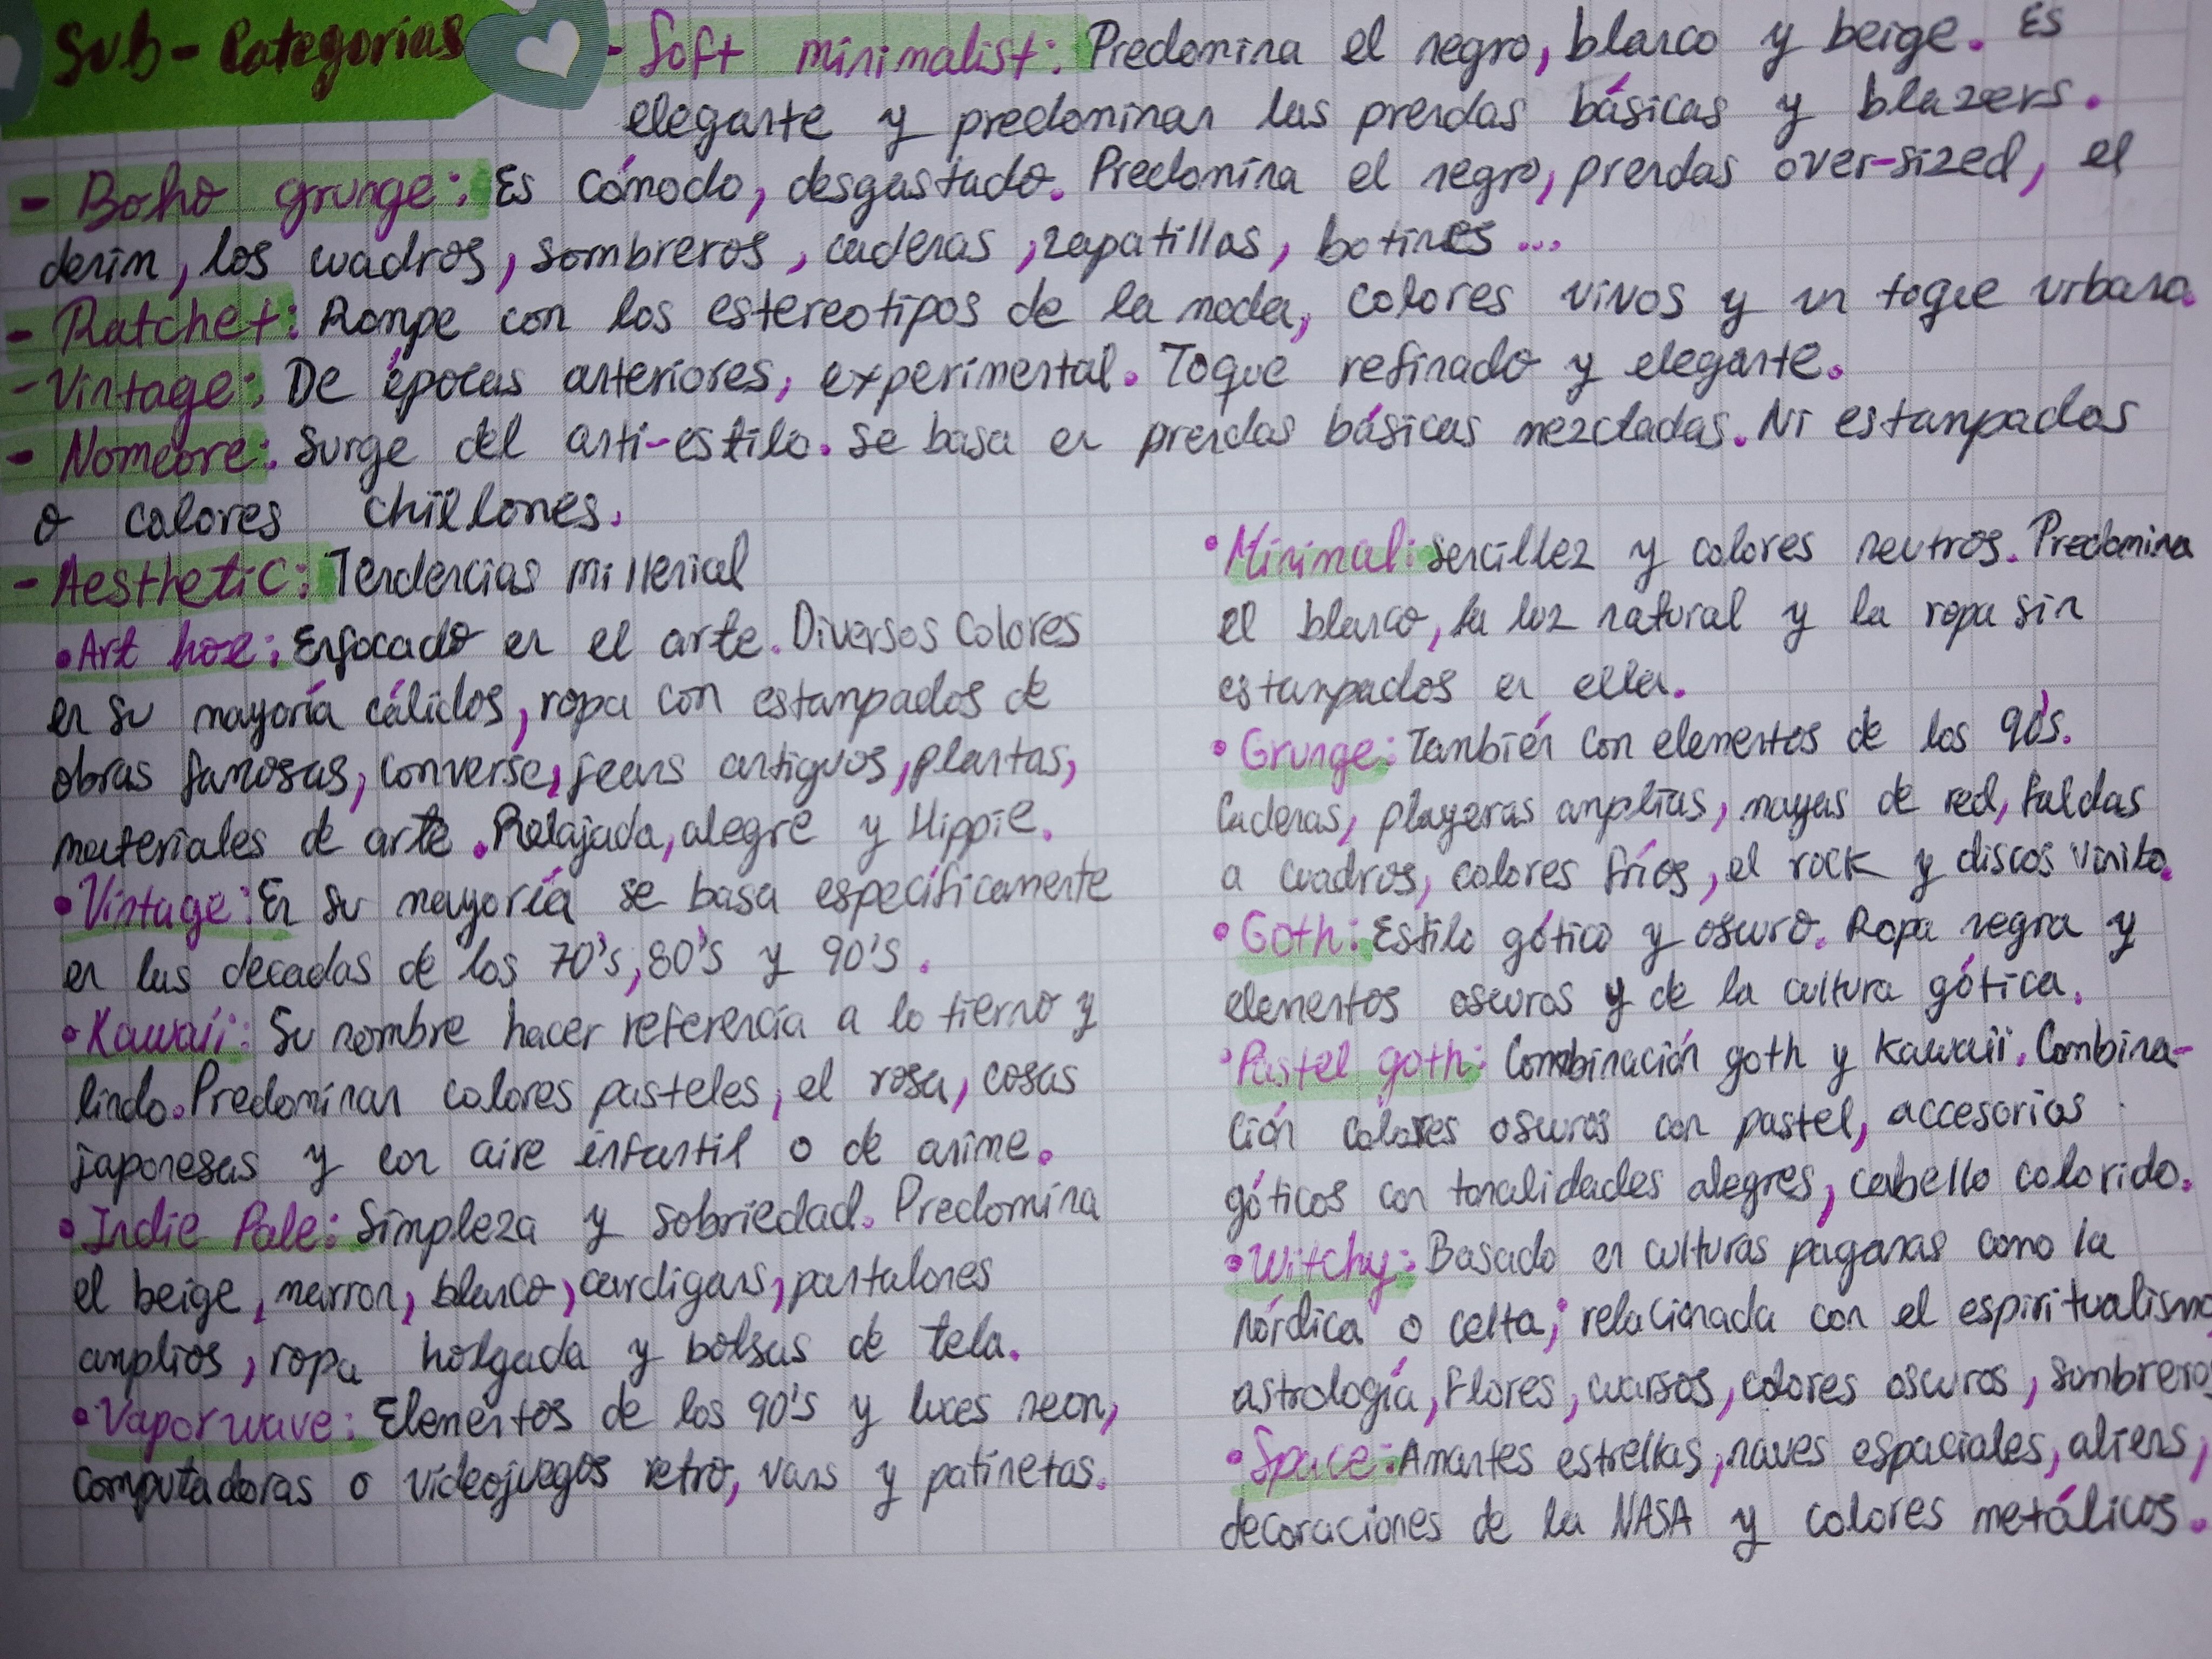 Sub-Categorías
- Soft minimalist: Predomina el negro, blanco y beige. Es
elegante y predominan las prendas básicas y blazers.
- Boho grunge: Es cómodo, desgastado. Predomina el negro, prendas over-sized, el
denim, los cuadros, sombreros, cadenas, zapatillas, botines...
- Ratchet: Rompe con los estereotipos de la moda, colores vivos y un toque urbano.
- Vintage: De épocas anteriores, experimental. Toque refinado y elegante.
- Nomcore: Surge del anti-estilo. Se basa en prendas básicas mezcladas. Ni estampados
o colores chillones.
- Aesthetic: Tendencias millenial
• Art hoe: Enfocado en el arte. Diversos colores
en su mayoría cálidos, ropa con estampados de
obras famosas, converse, jeans antiguos, plantas,
materiales de arte. Relajada, alegre y Hippie.
• Vintage: En su mayoría se basa específicamente
en las decadas de los 70's, 80's y 90's.
• Kawaii: Su nombre hacer referencia a lo tierno y
lindo. Predominan colores pasteles, el rosa, cosas
japonesas y con aire infantil o de anime.
• Indie Pale: Simpleza y sobriedad. Predomina
el beige, marron, blanco, cardigans, pantalones
amplios, ropa holgada y bolsas de tela.
• Vaporwave: Elementos de los 90's y luces neon,
computadoras o videojuegos retro, vans y patinetas.
• Minimal: Sencillez y colores neutros. Predomina
el blanco, la luz natural y la ropa sin
estampados en ella.
• Grunge: También con elementos de los 90's.
Cadenas, playeras amplias, mayas de red, faldas
a cuadros, colores fríos, el rock y discos vinilo.
• Goth: Estilo gótico y oscuro. Ropa negra y
elementos oscuros y de la cultura gótica.
• Pastel goth: Combinación goth y Kawaii. Combina-
ción colores oscuros con pastel, accesorios
góticos con tonalidades alegres, cabello colorido.
• Witchy: Basado en culturas paganas como la
nórdica o celta; relacionada con el espiritualismo
astrología, flores, cuarsos, colores oscuros, sombrero
• Space: Amantes estrellas, naves espaciales, aliens,
decoraciones de la NASA y colores metálicos.